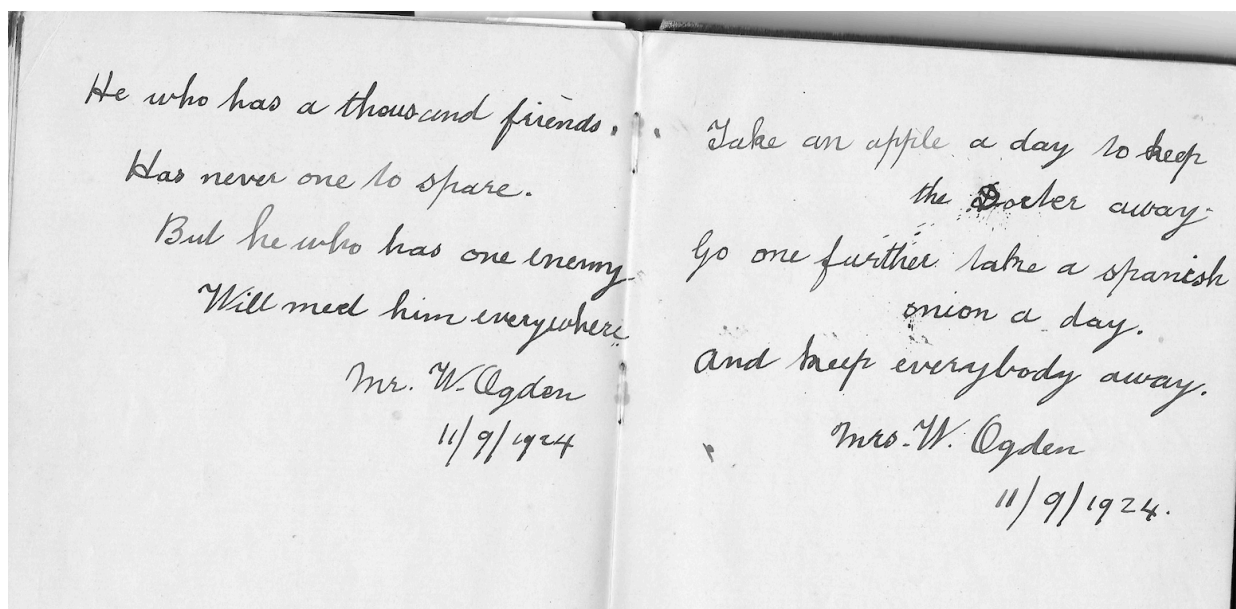 He who has a thousand friends.
Has never one to spare.
But he who has one enemy
Will meet him everywhere
Mr. W. Ogden
11/9/1924
Take an apple a day to keep
the Docter away.
Go one further take a spanish
onion a day.
And keep everybody away.
Mrs. W. Ogden
11/9/1924.